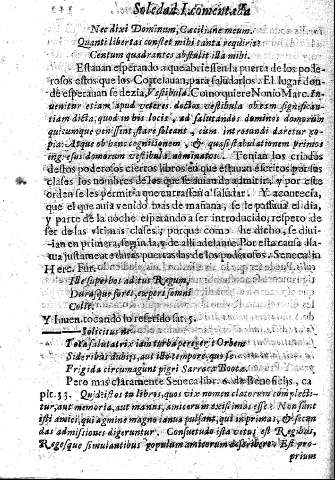 Soledad I. comentada
Nec dixi Dominum, Cæciliane meum.
Quanti libertas constet mihi tanta requiris?
Centum quadrantes abstulit illa mihi.
Estauan esperando a que abriessen la puerta de los pode-
rosos estos que los Cortejauan, para saludarlos. El lugar don-
de esperauan se dezia, Vestibula. Como quiere Nonio Marc. In-
uenitur etiam apud veteres doctos vestibula ob eam significan-
tiam dicta, quod in bis locis, ad salutandos dominos domorum
quicumque venissent, stare soleant, cum introeundi daretur co-
pia: Atque ob hanc cognitionem, & quasi stabulationem primos
ingresus domorum vestibula nominatos. Tenian los criados
destos poderosos ciertos libros en que estauan escritos por sus
clases los nombres de los que se auian de admitir, y por esta
orden se les permitia que entrassen a saludar. Y aconecia,
que el que auia venido mas de mañana, se le passaua el dia,
y parte de la noche esperando a ser introducido, respeto de
ser de las vltimas clases; porque como he dicho, se diui-
ian en primera, segunda, y de alli adelante. Por esta causa
justamente las puertas de los poderosos. Seneca in
Herc. Fur.
Ille superbos aditus Regum,
Durasque fores, expers somni
Colit.
Y Iuuen. tocando lo referido sat. 5.
Solicitus ne
Tota salutatrix iam turba peregerit Orbem
Sideribus dubijs, aut illo tempore, quo se
Frigida circumagunt pigri Sarraca Bootæ.
Pero mas claramente Seneca libr. 6. de Beneficijs, ca
pit. 33. Quid istos tu libros, quos vix nomen clatorum complecti-
tur, aut memoria, aut manus, amicorum existimas esse? Non sunt
isti amici, qui agmine magno ianua pulsant, qui in primas, & secun-
das admissiones digeruntur. Consuetudo ista vetus est Regibus,
Regesque simulantibus populum amicorum describere. Est pro-
prium